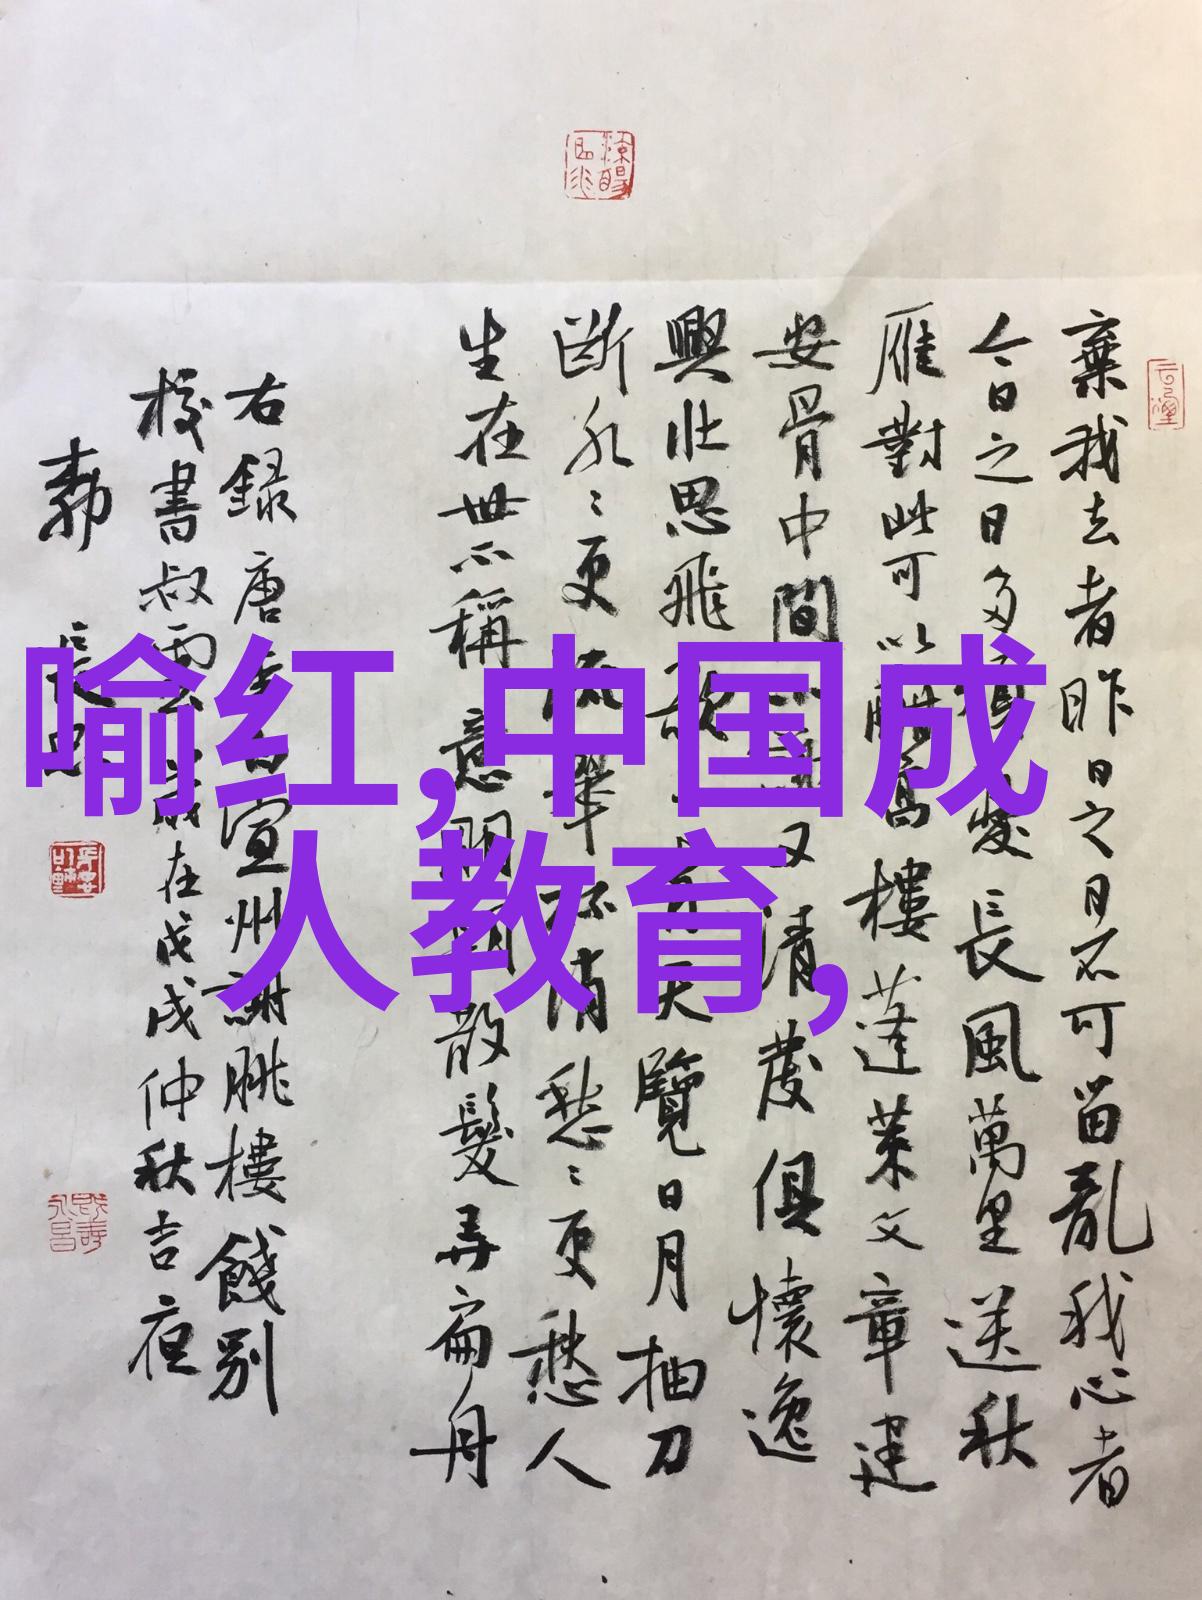 喻红,中国成
人教育,
棄我去者昨日之日不可留亂我心者
今日之日多煩憂長風萬里送秋
雁對此可以酣高樓蓬萊文章建
安骨中間小謝又清發俱懷逸
興壯思飛欲上青天覽日月抽刀
斷水〻更流舉杯消愁〻更愁人
生在世不稱意明朝散髮弄扁舟
右録唐李白宣州謝朓樓餞別
校書叔雲歲在戊戌仲秋吉夜